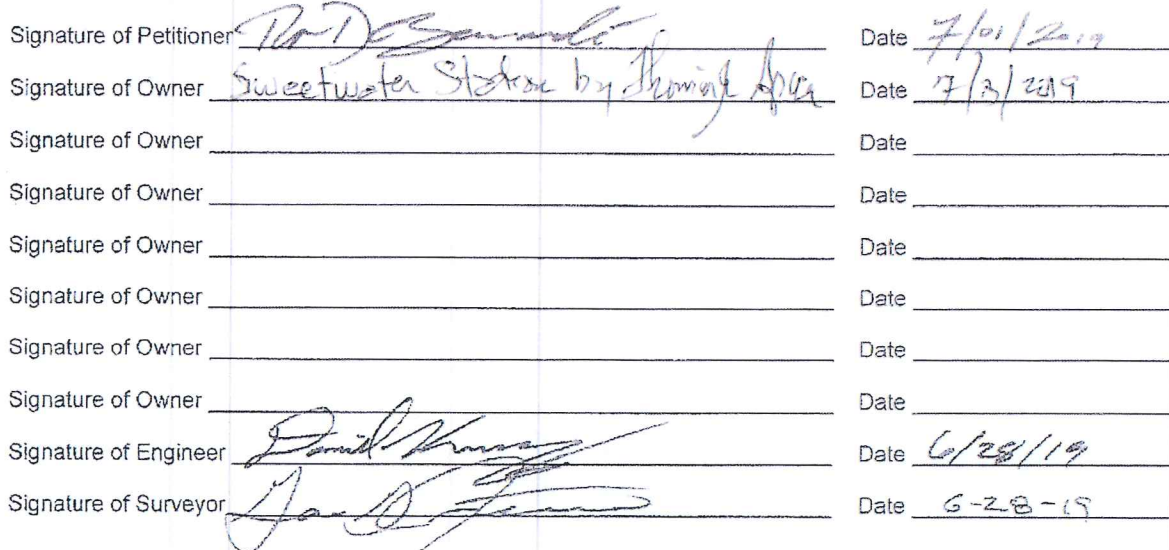 Signature of Petitioner Date 7/01/2019
Signature of Owner Sweetwater Station by Date 7/3/2019
Signature of Owner Date
Signature of Owner Date
Signature of Owner Date
Signature of Owner Date
Signature of Owner Date
Signature of Owner Date
Signature of Engineer Date 6/28/19
Signature of Surveyor Date 6-28-19